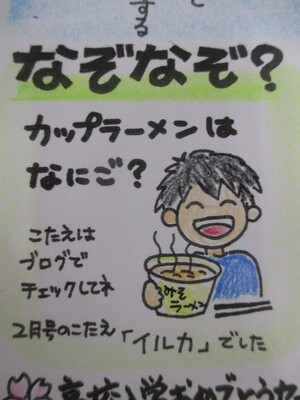 と
する
なぞなぞ?
カップラーメンは
なにご?
こたえは
ブログで
チェックしてネ
みそ
ラーメン
2月号のこたえ「イルカ」でした
高校入学おめでとう